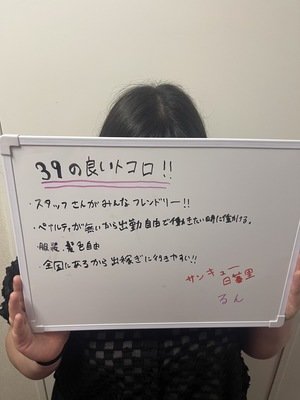 39の良いトコロ!!
・スタッフさんがみんなフレンドリー!!
・ペナルティが無いから出勤自由で働きたい時に働ける。
・服装 髪色自由
・全国にあるから出稼ぎに行きやすい!!
サンキュー
日暮里
るん